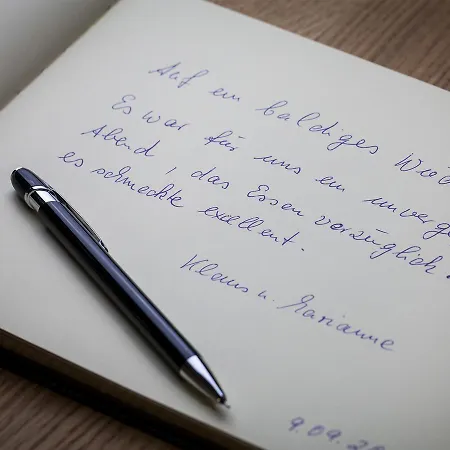 Auf ein baldiges Wied
Es war für uns ein unverge
Abend, das Essen vorzüglich.
es schmeckte exellent.
Klaus u. Marianne
9.09.20